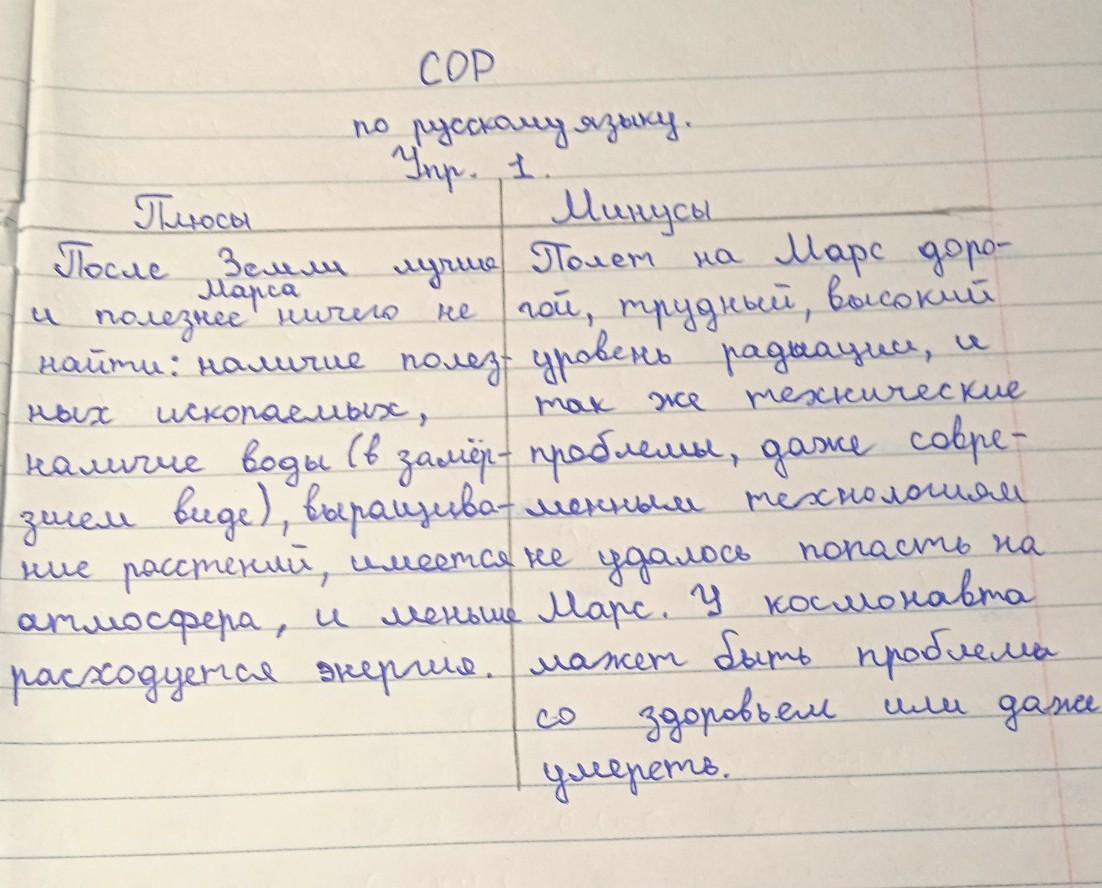 СОР
по русскому языку.
Упр. 1.
Плюсы
После Земли лучше
Марса
и полезнее ничего не
найти: наличие полез-
ных ископаемых,
наличие воды (в замёр-
зшем виде), выращива-
ние расстений, имеется
атмосфера, и меньше
расходуется энергия.
Минусы
Полет на Марс доро-
гой, трудный, высокий
уровень радиации, и
так же технические
проблемы, даже совре-
менным технологиям
не удалось попасть на
Марс. У космонавта
мажет быть проблемы
со здоровьем или даже
умереть.